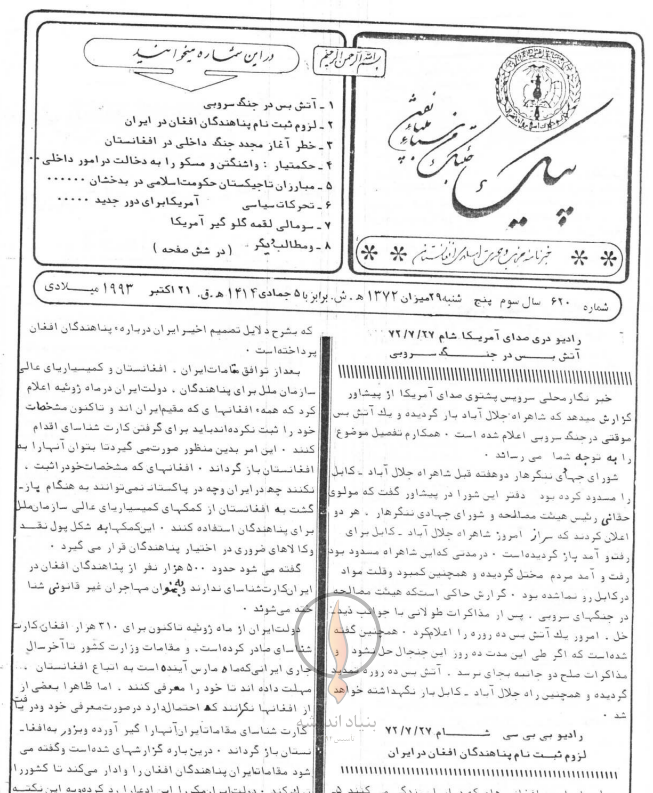 بسم الله الرحمن الرحیم
پیک
خبرنامه حزب وحدت اسلامی افغانستان
در این شماره میخوانید
۱ - آتش بس در جنگ سروبی
۲ - لزوم ثبت نام پناهندگان افغان در ایران
۳ - خطر آغاز مجدد جنگ داخلی در افغانستان
۴ - حکمتیار : واشنگتن و مسکو را به دخالت در امور داخلی ۰۰
۵ - مبارزان تاجیکستان حکومت اسلامی در بدخشان ۰۰۰۰۰۰
۶ - تحرکات سیاسی آمریکا برای دور جدید ۰۰۰۰۰
۷ - سومالی لقمه گلو گیر آمریکا
۸ - و مطالب دیگر ( در شش صفحه )
شماره ۶۲۰ سال سوم پنج شنبه ۲۹ میزان ۱۳۷۲ ه . ش . برابر با ۵ جمادی ۱۴۱۴ ه . ق . ۲۱ اکتبر ۱۹۹۳ میلادی
رادیو دری صدای آمریکا شام ۷۲/۷/۲۷
آتش بس در جنگ سروبی
خبر نگار محلی سرویس پشتوی صدای آمریکا از پیشاور
گزارش میدهد که شاهراه جلال آباد باز گردیده و یك آتش بس
موقتی در جنگ سروبی اعلام شده است ۰ همکارم تفصیل موضوع
را به توجه شما می رساند ۰
شورای جهادی ننگرهار دو هفته قبل شاهراه جلال آباد - کابل
را مسدود کرده بود دفتر این شورا در پیشاور گفت که مولوی
حقانی رئیس هیئت مصالحه و شورای جهادی ننگرهار ، هر دو
اعلان کردند که سر از امروز شاهراه جلال آباد - کابل برای
رفت و آمد باز گردیده است ۰ در مدتی که این شاهراه مسدود بود
رفت و آمد مردم مختل گردیده و همچنین کمبود وقلت مواد
در کابل رو نما شده بود ۰ گزارش حاکی است که هیئت مصالحه
در جنگهای سروبی ، پس از مذاکرات طولانی با جوانب ذید
خل ، امروز یك آتش بس ده روزه را اعلام کرد ۰ همچنین گفته
شده است که اگر طی این مدت ده روز این جنجال حل نشود و
مذاکرات صلح دو جانبه بجای نرسد ، آتش بس ده روزه
گردیده و همچنین راه جلال آباد - کابل باز نگهداشته خواهد
شد ۰
رادیو بی بی سی شام ۷۲/۷/۲۷
لزوم ثبت نام پناهندگان افغان در ایران
که بشرح دلایل تصمیم اخیر ایران درباره پناهندگان افغان
پرداخته است ۰
بعد از توافق مقامات ایران ، افغانستان و کمیساریای عالی
سازمان ملل برای پناهندگان ، دولت ایران در ماه ژوئیه اعلام
کرد که همه افغانها ی که مقیم ایران اند و تاکنون مشخصات
خود را ثبت نکرده اند باید برای گرفتن کارت شناسای اقدام
کنند ۰ این امر بدین منظور صورت می گیرد تا بتوان آنها را به
افغانستان باز گرداند ۰ افغانهای که مشخصات خود را ثبت
نکنند چه در ایران وچه در پاکستان نمی توانند به هنگام باز-
گشت به افغانستان از کمکهای کمیساریای عالی سازمان ملل
برای پناهندگان استفاده کنند ۰ این کمکها به شکل پول نقد
وکالاهای ضروری در اختیار پناهندگان قرار می گیرد ۰
گفته می شود حدود ۵۰۰ هزار نفر از پناهندگان افغان در
ایران کارت شناسای ندارند و به عنوان مهاجران غیر قانونی شنا
خته می شوند ۰
دولت ایران از ماه ژوئیه تاکنون برای ۲۱۰ هزار افغان کارت
شناسای صادر کرده است ، و مقامات وزارت کشور تا آخر سال
جاری ایرانی که ماه مارس آینده است به اتباع افغانستان
مهلت داده اند تا خود را معرفی کنند ۰ اما ظاهرا بعضی از
افغانها نگرانند که احتمال دارد در صورت معرفی خود و دریا فت
کارت شناسای مقامات ایران آنها را گیر آورده و بزور به افغا-
نستان باز گرداند ۰ درین باره گزارشهای شده است وگفته می
شود مقامات ایران پناهندگان افغان را وادار می کند تا کشور را
بنیاد اندیشه